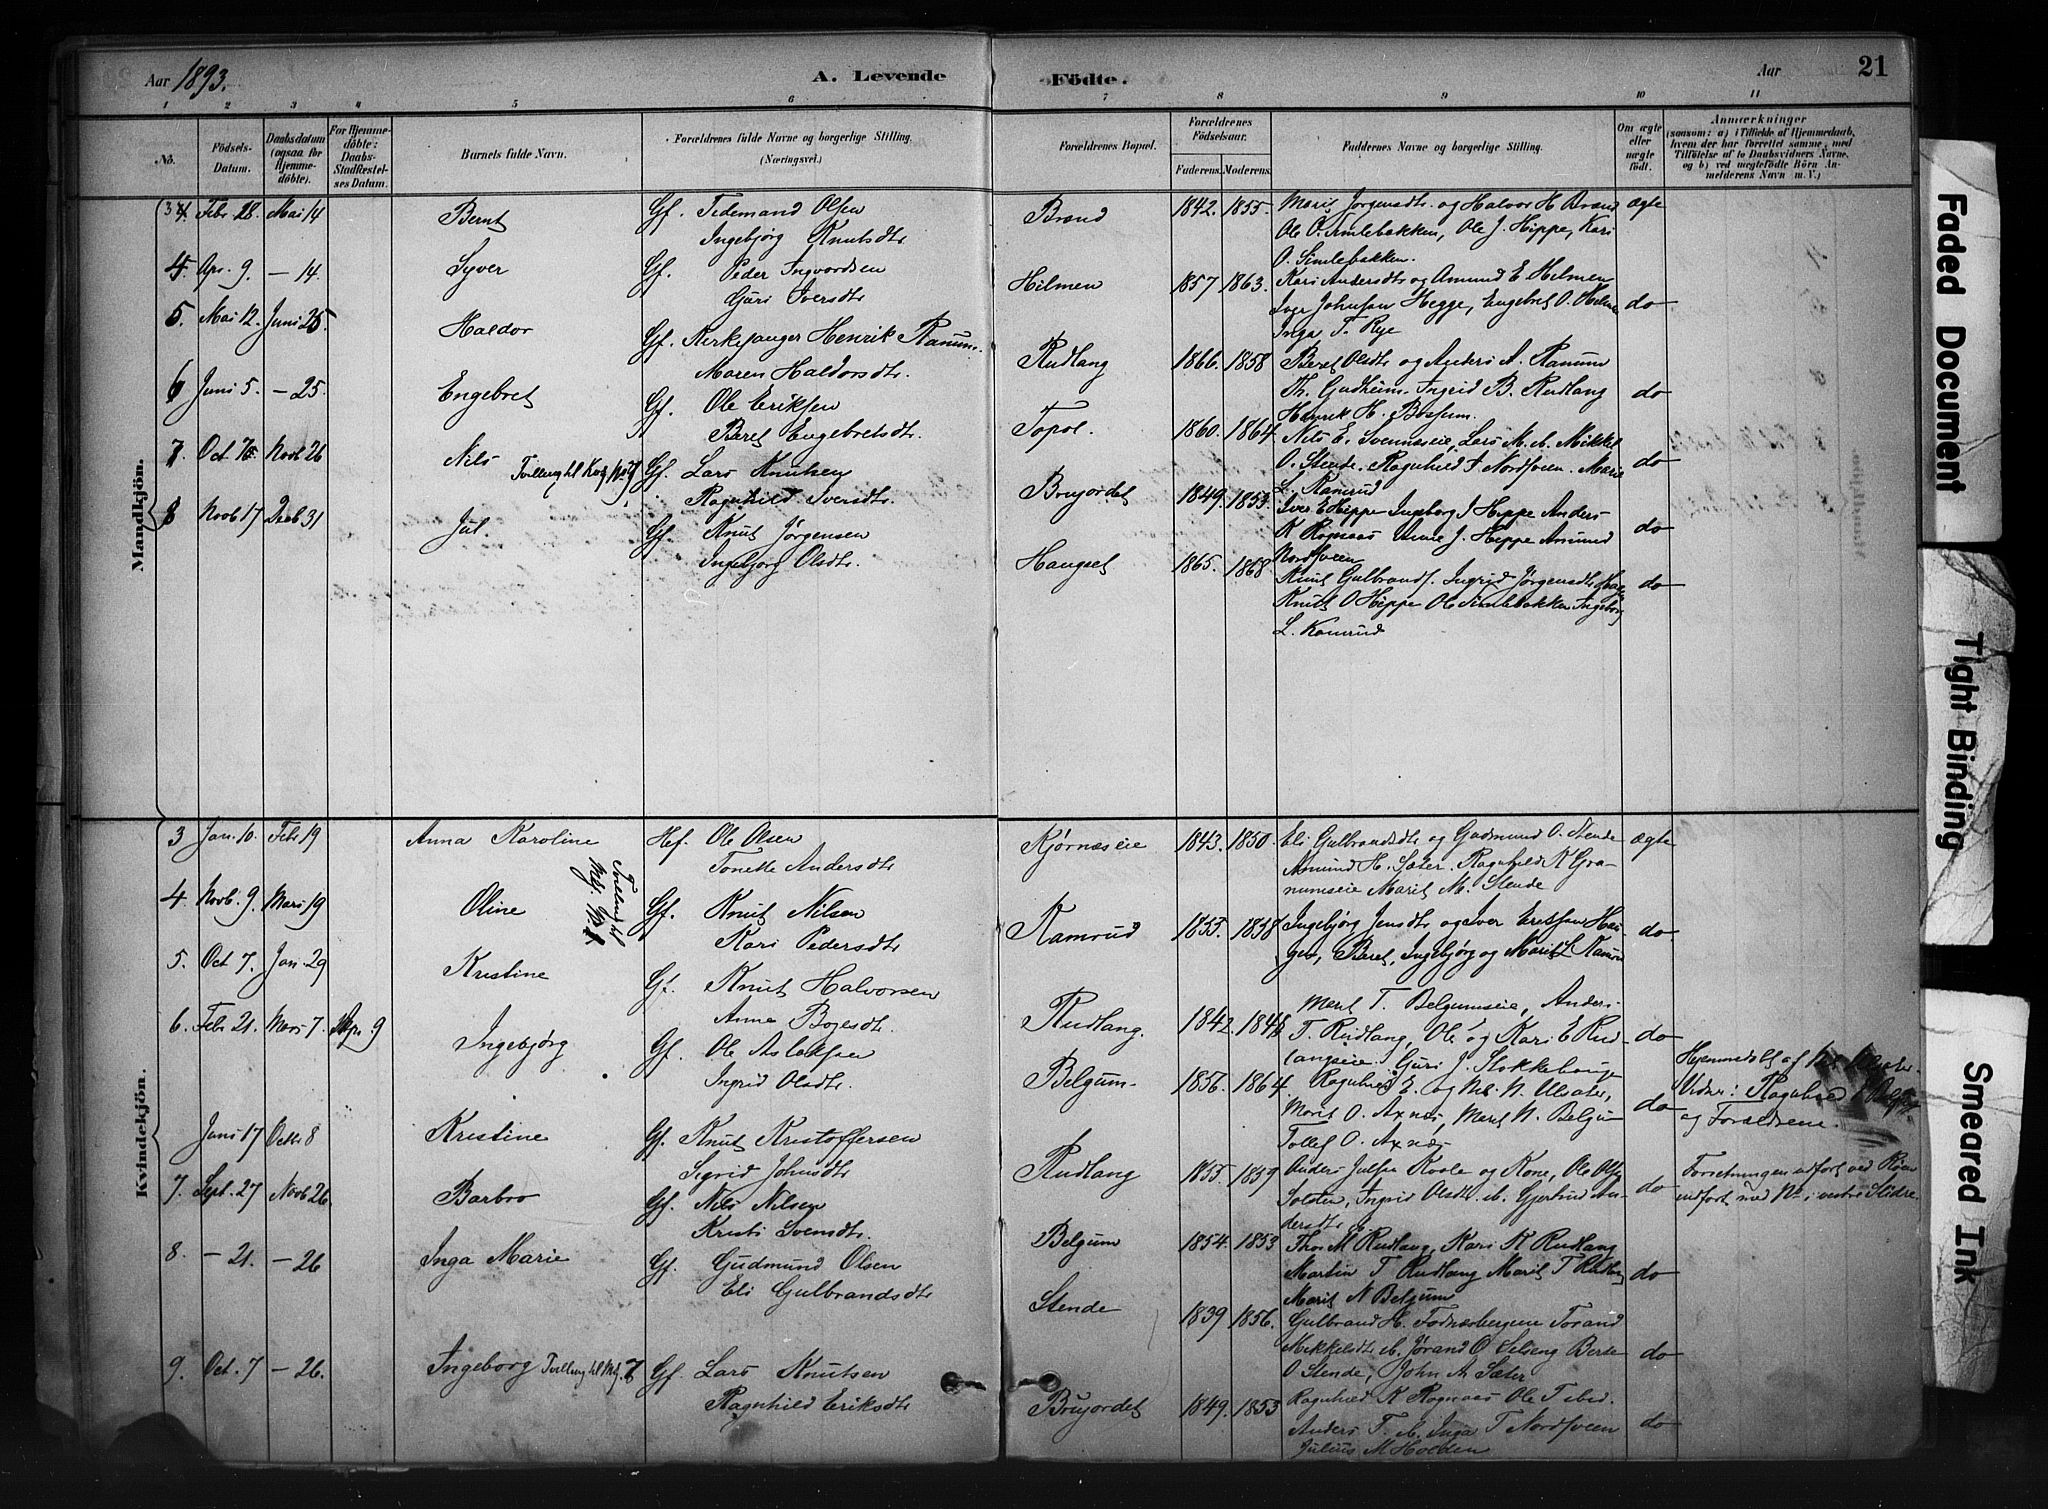 Aar 1893.
A. Levende
Födte.
Aar
21
1 2 3 4 5 6 7 8 9 10 11
No.
Födsels-Datum.
Daabsdatum (ogsaa for Hjemme-döbte).
For Hjemme-döbte: Daabs-Stadfæstel-ses Datum.
Barnets fulde Navn.
Forældrenes fulde Navne og borgerlige Stilling. (Næringsvei.)
Forældrenes Bopæl.
Forældrenes Födselsaar.
Faderens. Moderens.
Faddernes Navne og borgerlige Stilling.
Om ægte eller uægte födt.
Anmærkninger
(saasom: a) i Tilfælde af Hjemmedaab, hvem der har forrettet samme, med Tilföielse af to Daabsvidners Navne, og b) ved uegtefödte Börn Anmelderens Navn m. V.)
Mandkjön.
Febr 28. Mai 14 Bernt Gf. Tidemand Olsen
Ingebjørg Knutsdtr
Brand 1842. 1855. Marit Jørgensdtr. og Halvor H Brand ægte
Ole O. Simlebakken, Ole J. Hippe, Kari
O. Simlebakken.
4. Apr. 9. — 14. Syver Gf. Peder Ingvordsen
Guri Iversdtr
Hilmen 1857 1863. Kari Andersdtr og Amund E Hilmen do
Iver Johnsen Hegge, Engebret O. Hilmen
Inga T. Rye
5. Mai 12. Juni 25 Haldor Gf. Kirkesanger Henrik Ranum
Maren Haldorsdtr.
Rudlang 1866. 1858 Beret Olsdtr og Anders A. Ranum do
Th. Gudheim Ingrid B. Rudlang
Henrik H.
6 Juni 5. — 25. Engebret Gf. Ole Eriksen
Beret Engebretsdtr.
Topol. 1860. 1864 Nils E. Svennseie, Lars M. Mikkel do
O. Stende. Ragnhild Nordsveen. Marie
L. Ramrud
7 Oct Novb 26 Nils Tvilling til Kv. No 9 Gf. Lars Knutsen
Ragnhild Iversdtr.
Brujordet 1849. 1853. Iver E Hippe Ingeborg J Hippe Anders do
K Rognaas Anne J. Hippe Amund
Nordsveen
8 Novb 17 Decb 31 Jul. Gf. Knut Jørgensen
Ingebjørg Olsdtr.
Haugset 1865. 1868. Knut Gulbrands. Ingrid Jørgensdtr do
Knut O Hippe Ole Simlebakken Ingeborg
L. Kamrud
Kvindekjön.
3 Jan. 10. Febr 19 Anna Karoline Hef. Ole Olsen
Tonette Andersdtr
Kjørnæseie 1843. 1850. Eli Gulbrandsdtr og Gudmund O. Stende ægte
Amund H. Sæter. Ragnhild K Granumseie
Marit M. Stende
4 Novb. 9. Mars 19 Oline Gf. Knut Nilsen
Kari Pedersdtr
Kamrud 1855. 1858 Ingebjørg Jensdtr og Iver do
Beret, Ingebjørg og Marit L Kamrud
5. Oct 7. Jan. 29 Kristine Gf. Knut Halvorsen
Anna Bojesdtr.
Rudlang. 1842. 1848 Marit T. Belgumseie, Anders do
T. Rudlang, Ole og Kari E Rudlangseie.
6. Febr 21. Mars 7. Apr 9 Ingebjørg Gf. Ole Aslaksen
Ingrid Olsdtr.
Belgum 1856. 1864. Guri J. Stokkebauge do
Ragnhild E. og N. N. Ulsater,
Marit O. Axnæs, Marit N. Belgum
Tollef O. Axnæs
Hjemmedøbt af
Vidner: Ragnhild Belgum
og Forældrene.
Juni 17 Octb 8 Kristine Gf. Knut Kristoffersen
Sigrid Johnsdtr
Rudlang 1855. 1859 Anders Julsen Koole og Kone, Ole Ols. do
Solsten, Ingrid Olsdtr. Gjertrud Andersdtr
Forretningen udført ved Røen
indført med No i vestre Slidre
7. Sept. 27 Novb 26. Barbro Gf. Nils Nilsen
Kristi Svensdtr.
Belgum 1854. 1853 Thor M Rudlang, Kari H Rudlang do
Martin T Rudlang Marit T Rudlang
Marit N Belgum
8. — 21. — 26 Inga Marie Gf. Gudmund Olsen
Eli Gulbrandsdtr
Stende 1839 1856. Gulbrand H. Fodnæsbergene Torand do
Mikkelsdtr Jørand O Selseng Berte
O Stende, John A. Sæter
9. Oct. 7 — 26. Ingeborg Tvilling til Mk. 7 Gf. Lars Knutsen
Ragnhild Eriksdtr
Brujordet 1849. 1853 Ragnhild K Rognaas Ole T ibid. do
Anders T. Inga T Nordsveen
Julius M Hodden
Faded Document
Tight Binding
Smeared Ink